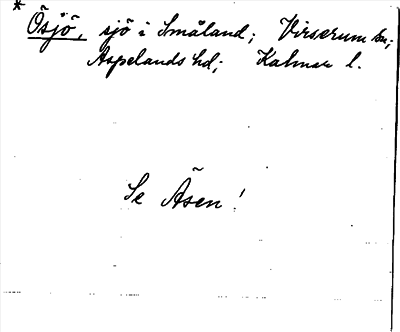 * Ösjö, sjö i Småland; Virserum sn;
Aspelands hd; Kalmar l.
Se Åsen!